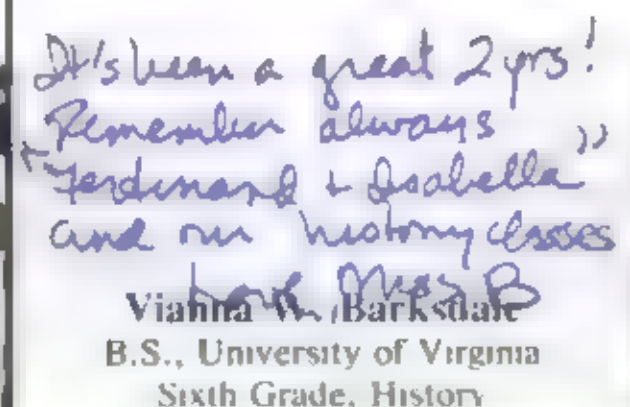 It's been a great 2 yrs!
Remember always
"Ferdinand + Isabella"
and our history classes
Love Mrs B
Vianna W. Barksdale
B.S., University of Virginia
Sixth Grade, History